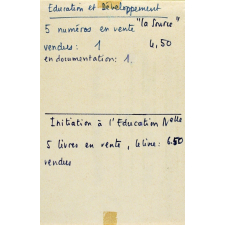 Education et Développement
5 numéros en vente "la Source"
vendus: 1 4,50
en documentation: 1.
Initiation à l'Education Nelle
5 livres en vente, le livre: 6.50
vendus